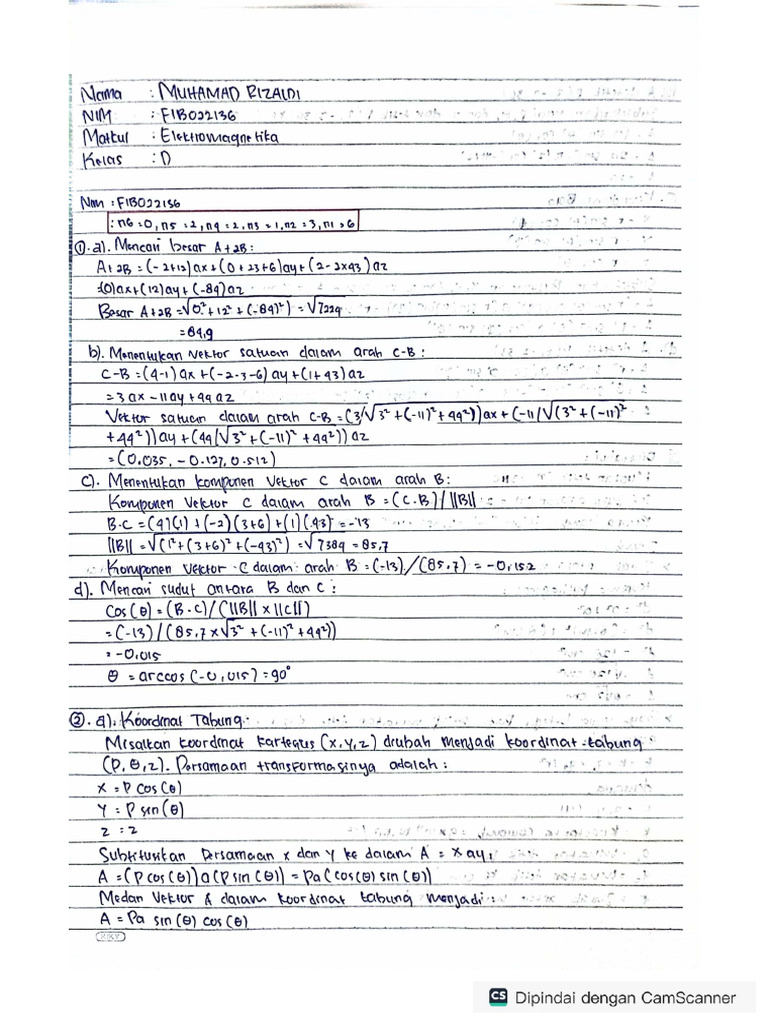 Nama : MUHAMAD RIZALDI
NIM : F1B022136
Matkul : Elektromagnetika
Kelas : D
Nim : F1B022136
: n6 = 0, n5 = 2, n4 = 2, n3 = 1, n2 = 3, n1 = 6
1. a). Mencari besar A+2B :
A+2B = (-2+12) ax + (0+23+6) ay + (2-2x43) az
(0) ax + (12) ay + (-84) az
Besar A+2B = √(0² + 12² + (-84)²) = √7224
= 84,9
b). Menentukan vektor satuan dalam arah C-B :
C-B = (4-1) ax + (-2-3-6) ay + (1+43) az
= 3 ax - 11 ay + 44 az
Vektor satuan dalam arah C-B = (3/√3² + (-11)² + 44²)) ax + (-11/√(3² + (-11)²
+ 44²)) ay + (44/√3² + (-11)² + 44²)) az
= (0.035, -0.127, 0.512)
c). Menentukan komponen vektor C dalam arah B :
Komponen vektor C dalam arah B = (C.B) / ||B||
B.C = (4)(1) + (-2)(3+6) + (1)(-43) = -13
||B|| = √(1² + (3+6)² + (-43)²) = √7384 = 85,7
Komponen vektor C dalam arah B = (-13) / (85,7) = -0,152
d). Mencari sudut antara B dan C :
Cos (θ) = (B.C) / (||B|| x ||C||)
= (-13) / (85,7 x √3² + (-11)² + 44²))
= -0,015
θ = arccos (-0,015) = 90°
2. a). Koordinat Tabung.
Misalkan koordinat kartegius (x,y,z) drubah menjadi koordinat tabung
(P, θ, z). Persamaan transformasinya adalah :
x = P cos (θ)
Y = P sin (θ)
z = z
Subtitusikan Persamaan x dan y ke dalam A = x ay,
A = (P cos (θ)) a (P sin (θ)) = Pa (cos (θ) sin (θ))
Medan vektor A dalam koordinat tabung menjadi :
A = Pa sin (θ) cos (θ)
KIKY
CS Dipindai dengan CamScanner